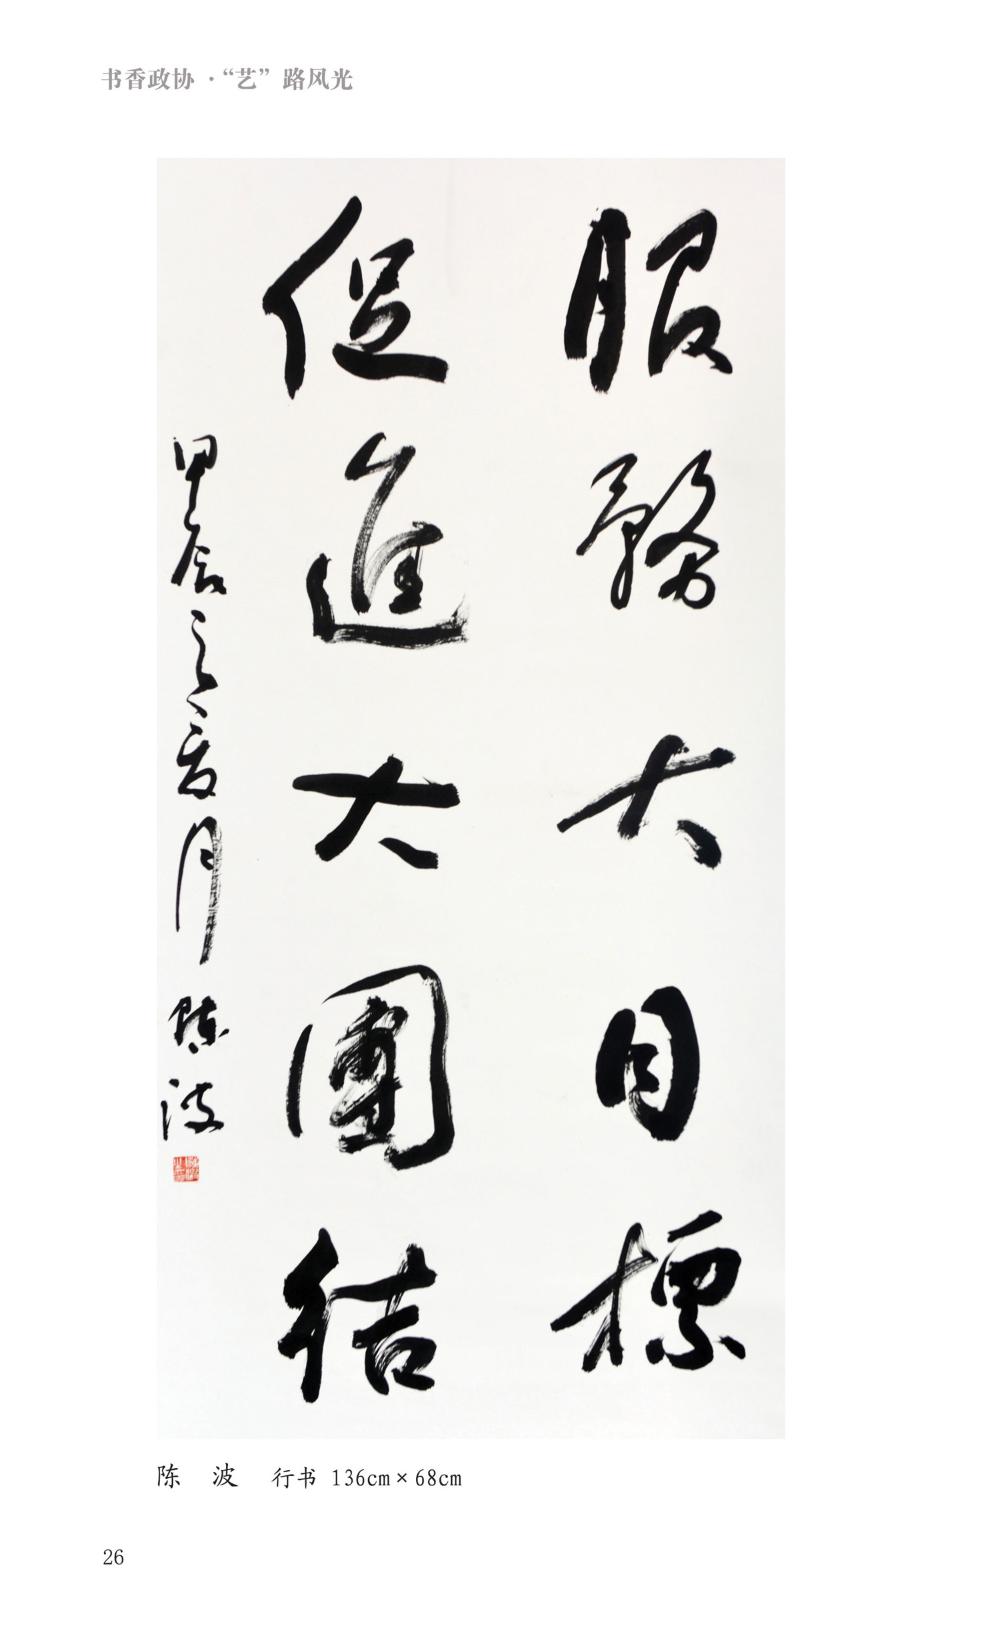 书香政协·“艺”路风光
服務大目標
促進大團結
甲辰之夏月 陳波
陈 波 行书 136cm×68cm
26